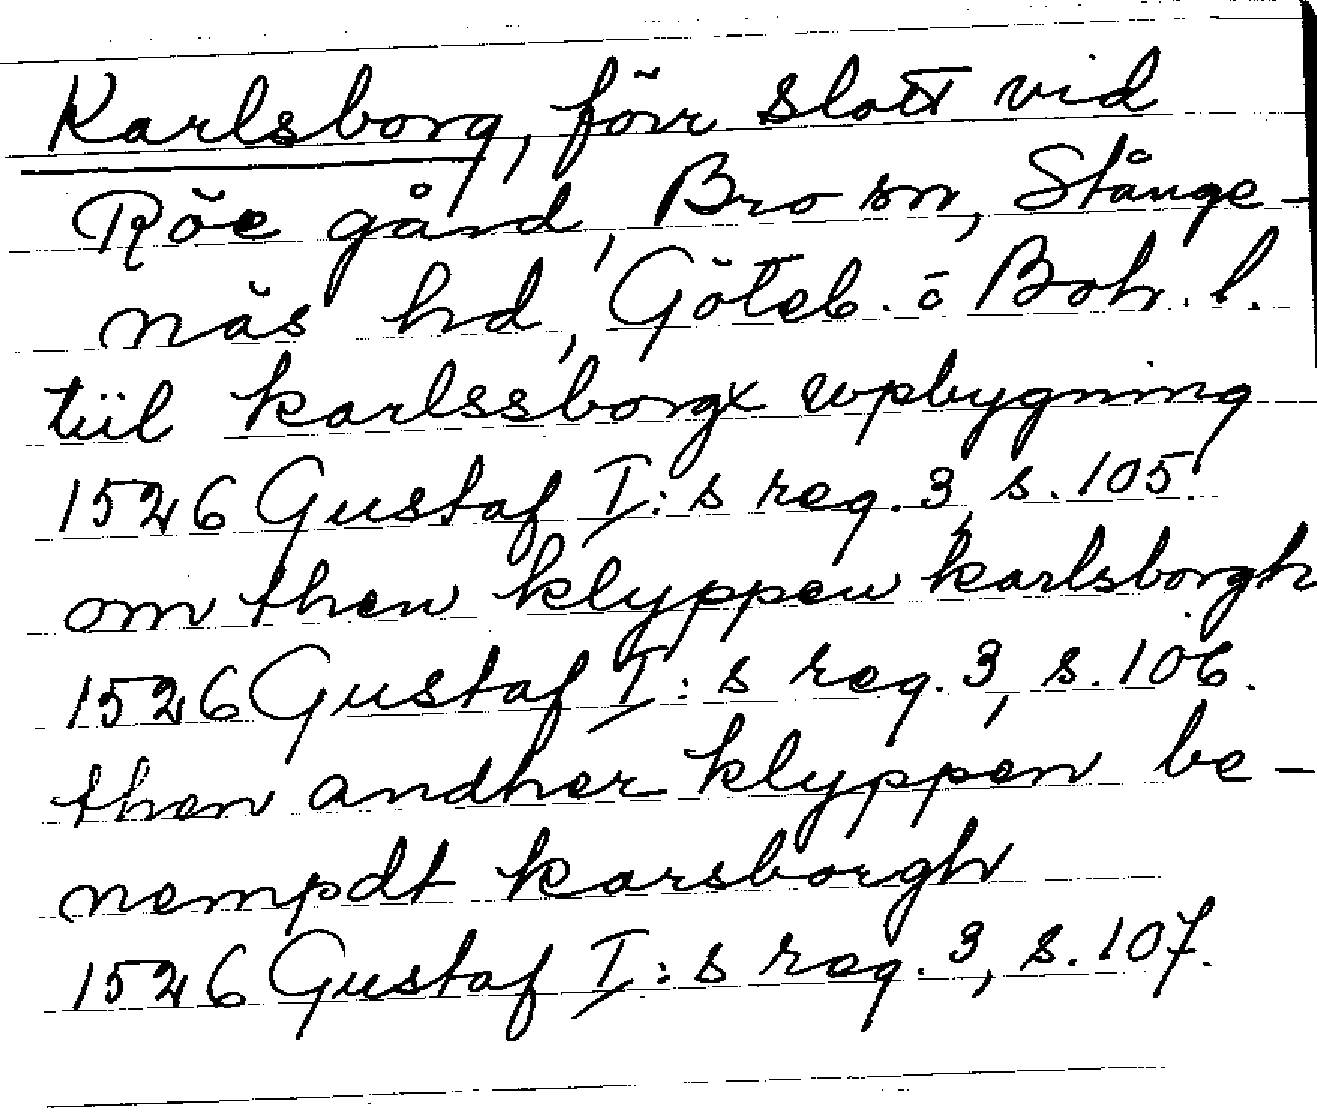 Karlsborg, förr slott vid
Röe gård, Bro sn, Stånge-
näs hd, Göteb. o Boh. l.
tiil karlssborgx wpbygning
1526 Gustaf I:s reg. 3, s. 105.
om then klyppen karlsborgh
1526 Gustaf I:s reg. 3, s. 106.
then andher klyppen be-
nempdt karsborgh
1526 Gustaf I:s reg. 3, s. 107.